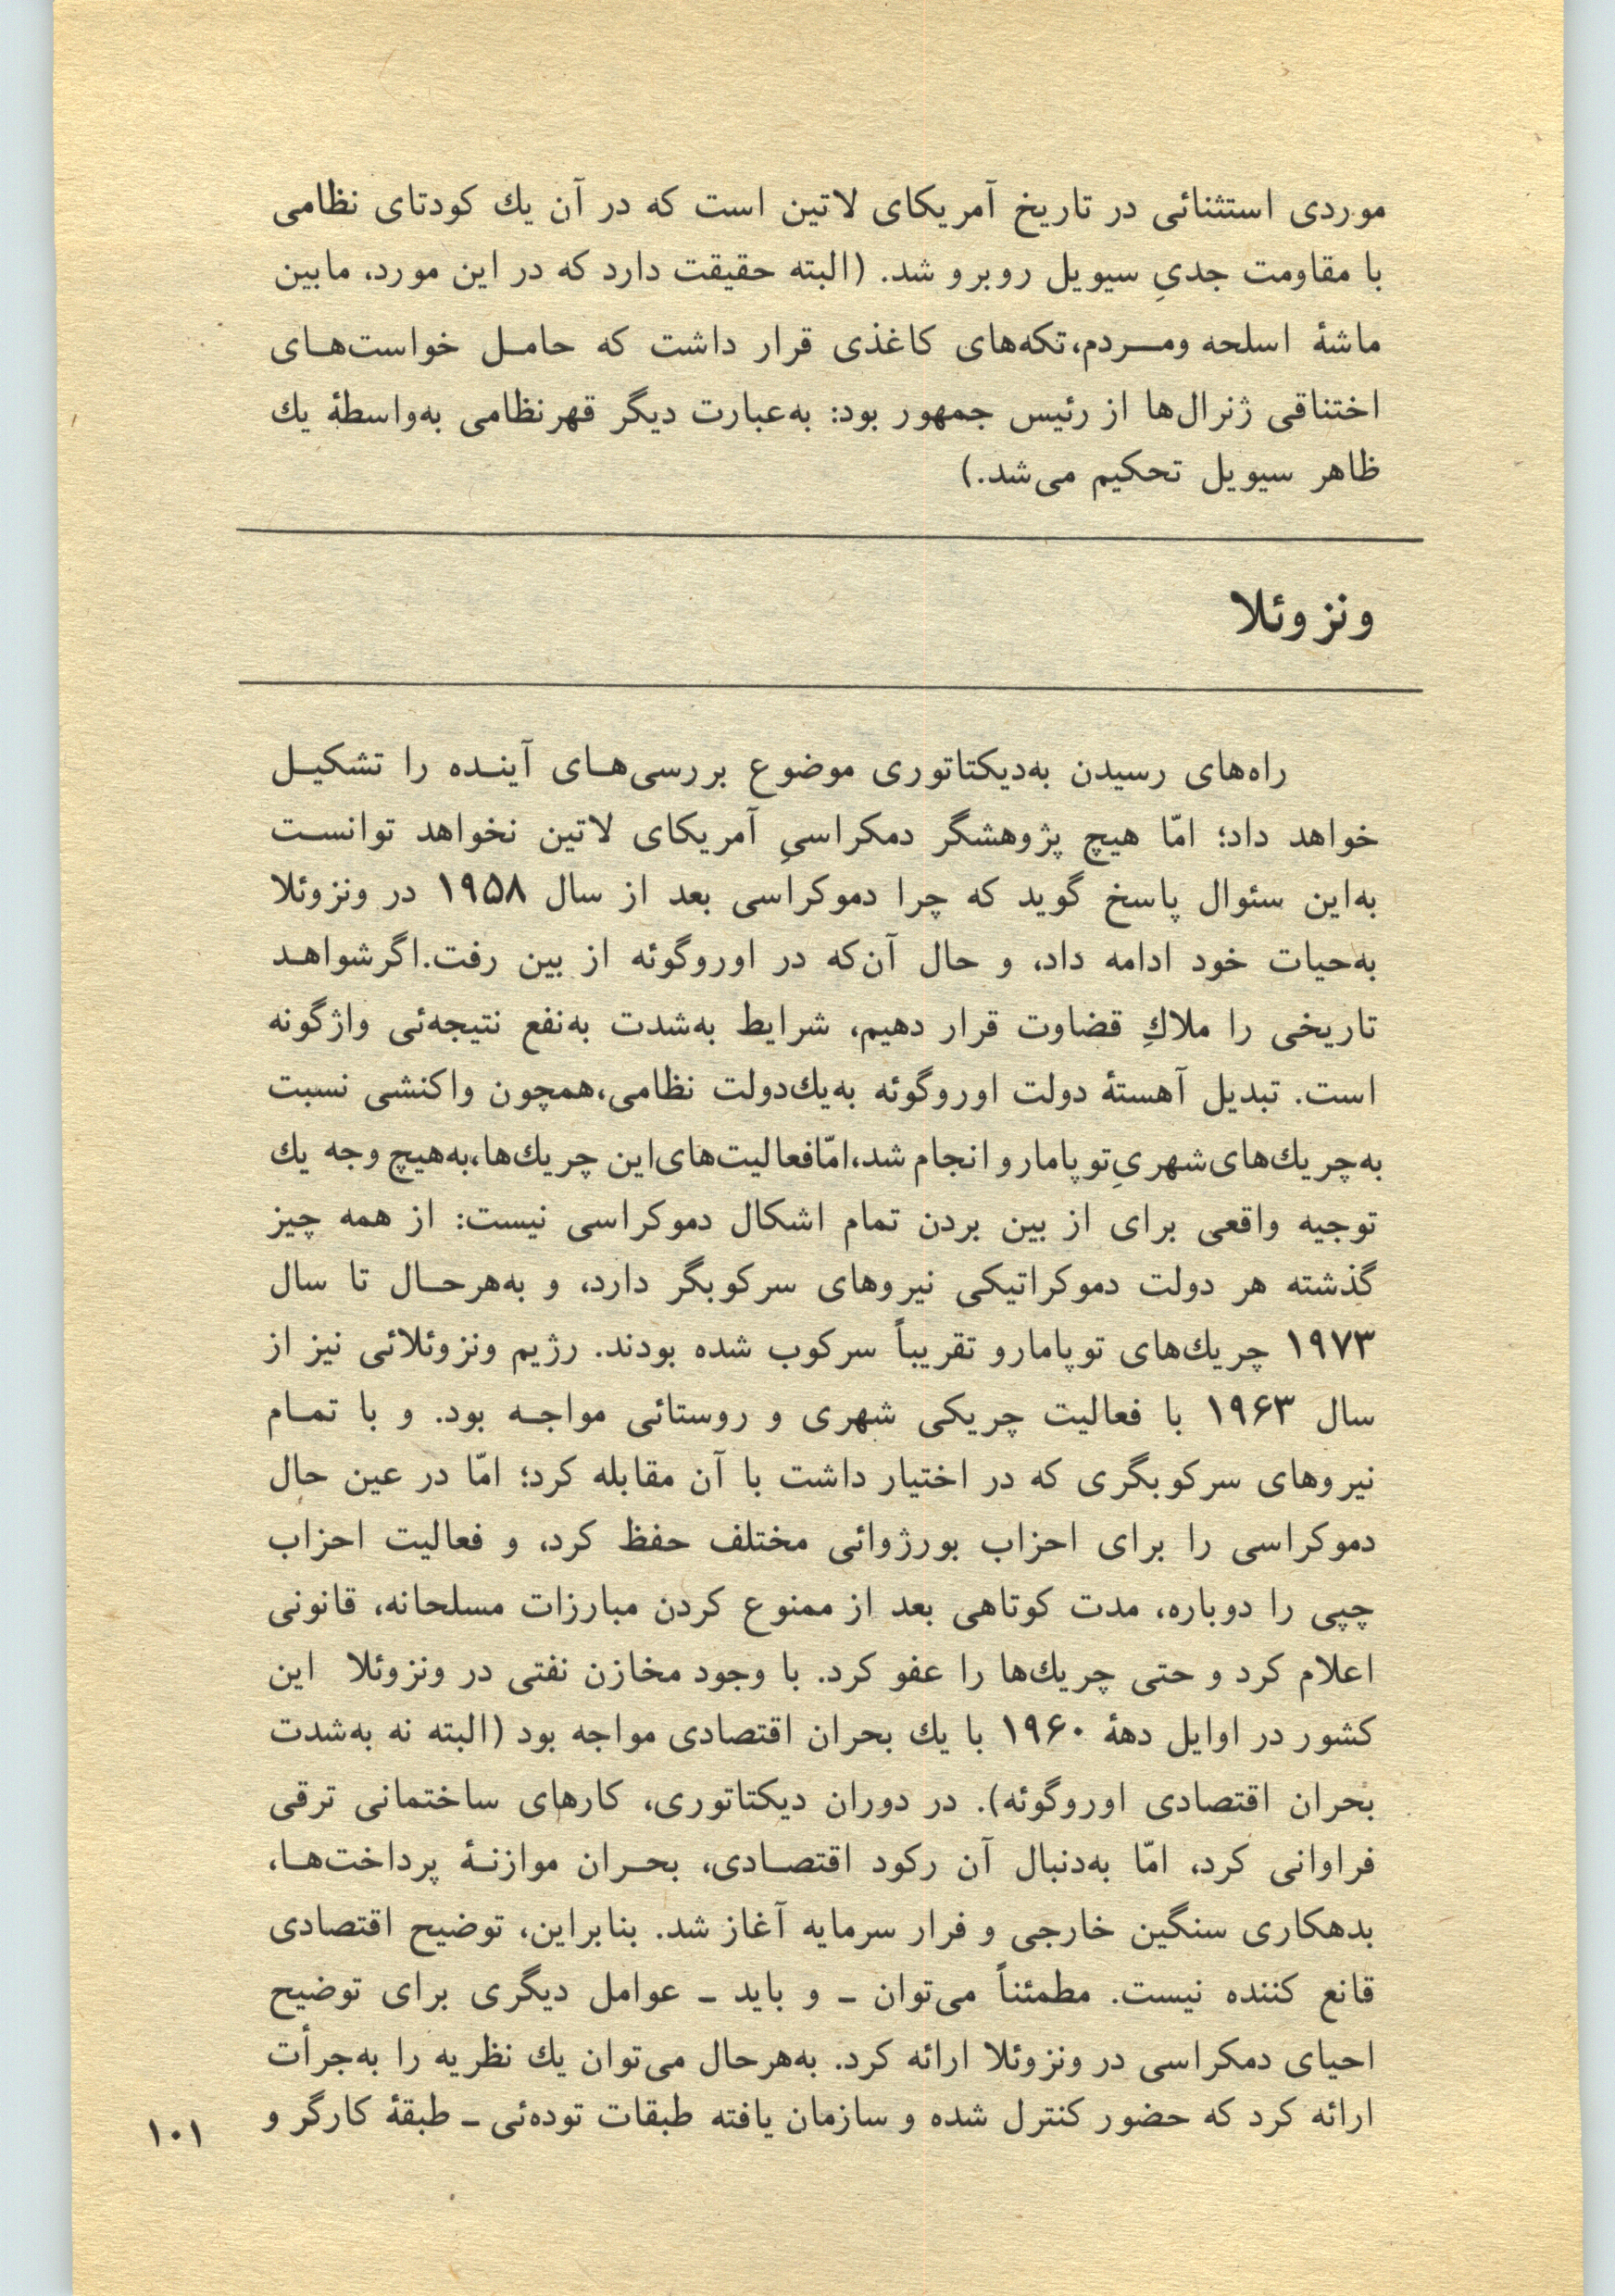 موردی استثنائی در تاریخ آمریکای لاتین است که در آن یك کودتای نظامی
با مقاومت جدیِ سیویل روبرو شد. (البته حقیقت دارد که در این مورد، مابین
ماشهٔ اسلحه ومـــردم،تکه‌های کاغذی قرار داشت که حامـل خواست‌هـای
اختناقی ژنرال‌ها از رئیس جمهور بود: به‌عبارت دیگر قهرنظامی به‌واسطهٔ یك
ظاهر سیویل تحکیم می‌شد.)
ونزوئلا
راه‌های رسیدن به‌دیکتاتوری موضوع بررسی‌هـای آینـده را تشکیـل
خواهد داد؛ امّا هیچ پژوهشگر دمکراسیِ آمریکای لاتین نخواهد توانسـت
به‌این سئوال پاسخ گوید که چرا دموکراسی بعد از سال ۱۹۵۸ در ونزوئلا
به‌حیات خود ادامه داد، و حال آن‌که در اوروگوئه از بین رفت.اگرشواهـد
تاریخی را ملاكِ قضاوت قرار دهیم، شرایط به‌شدت به‌نفع نتیجه‌ئی واژگونه
است. تبدیل آهستهٔ دولت اوروگوئه به‌یك‌دولت نظامی،همچون واکنشی نسبت
به‌چریك‌های‌شهریِ‌توپامارو انجام شد،امّافعالیت‌های‌این چریك‌ها،به‌هیچ وجه یك
توجیه واقعی برای از بین بردن تمام اشکال دموکراسی نیست: از همه چیز
گذشته هر دولت دموکراتیکی نیروهای سرکوبگر دارد، و به‌هرحـال تا سال
۱۹۷۳ چریك‌های توپامارو تقریباً سرکوب شده بودند. رژیم ونزوئلائی نیز از
سال ۱۹۶۳ با فعالیت چریکی شهری و روستائی مواجـه بود. و با تمـام
نیروهای سرکوبگری که در اختیار داشت با آن مقابله کرد؛ امّا در عین حال
دموکراسی را برای احزاب بورژوائی مختلف حفظ کرد، و فعالیت احزاب
چپی را دوباره، مدت کوتاهی بعد از ممنوع کردن مبارزات مسلحانه، قانونی
اعلام کرد و حتی چریك‌ها را عفو کرد. با وجود مخازن نفتی در ونزوئلا این
کشور در اوایل دههٔ ۱۹۶۰ با یك بحران اقتصادی مواجه بود (البته نه به‌شدت
بحران اقتصادی اوروگوئه). در دوران دیکتاتوری، کارهای ساختمانی ترقی
فراوانی کرد، امّا به‌دنبال آن رکود اقتصـادی، بحـران موازنـهٔ پرداخت‌هـا،
بدهکاری سنگین خارجی و فرار سرمایه آغاز شد. بنابراین، توضیح اقتصادی
قانع کننده نیست. مطمئناً می‌توان ـ و باید ـ عوامل دیگری برای توضیح
احیای دمکراسی در ونزوئلا ارائه کرد. به‌هرحال می‌توان یك نظریه را به‌جرأت
ارائه کرد که حضور کنترل شده و سازمان یافته طبقات توده‌ئی ـ طبقهٔ کارگر و
۱۰۱